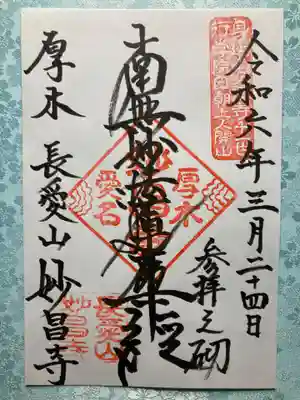 令和六年三月二十四日
参拝之砌
南無妙法蓮華経
厚木
愛名
厚木 長愛山 妙昌寺
長愛山
妙昌寺